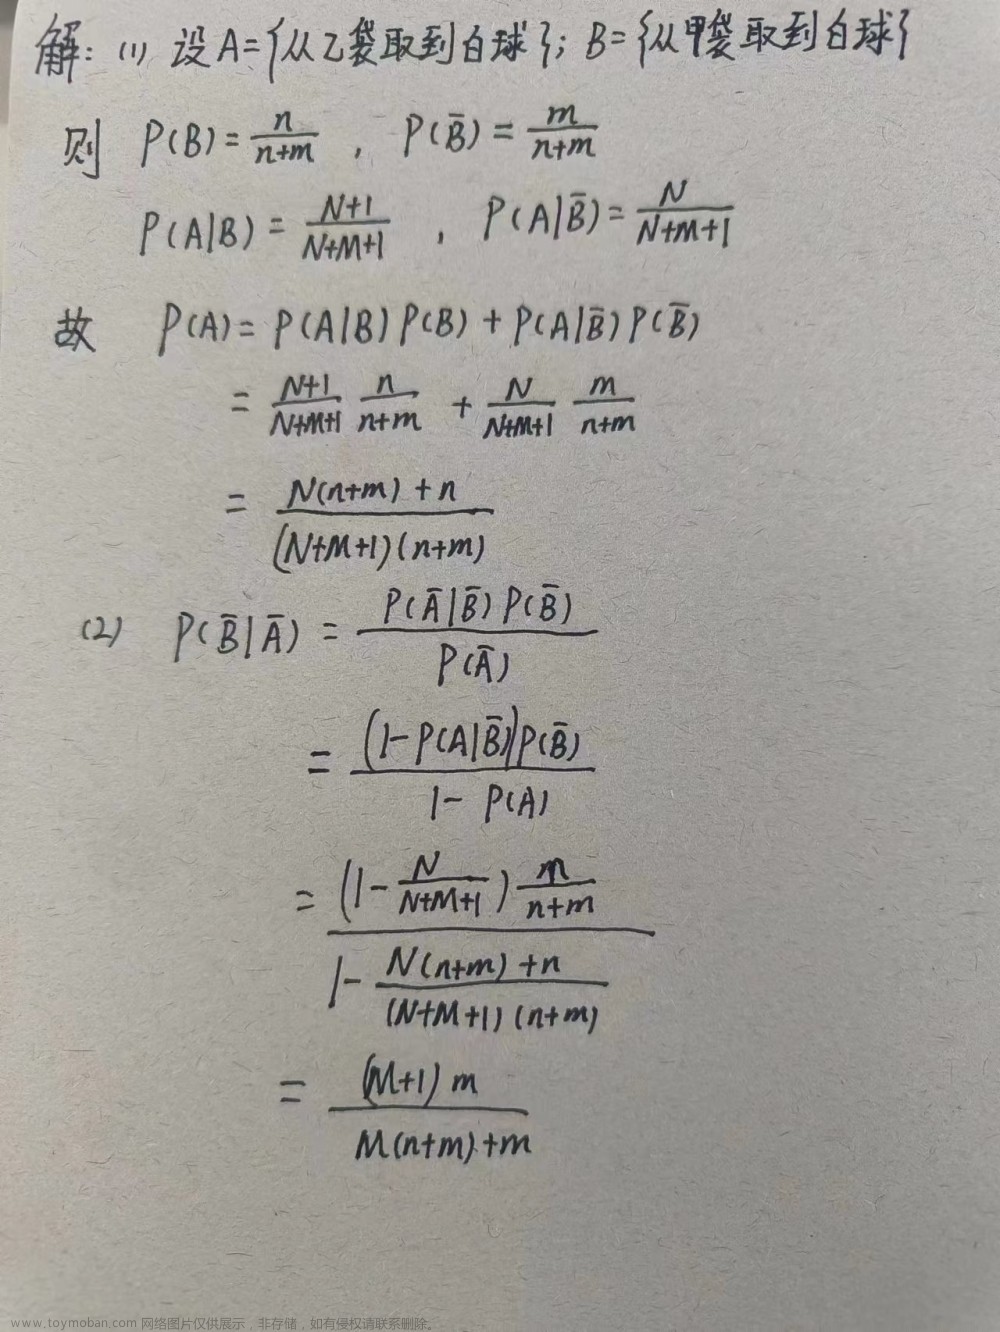 解: (1) 设A={从乙袋取到白球}; B={从甲袋取到白球}
则 P(B)=n/(n+m) , P(B̄)=m/(n+m)
P(A|B)=(N+1)/(N+M+1) , P(A|B̄)=N/(N+M+1)
故 P(A)=P(A|B)P(B)+P(A|B̄)P(B̄)
= (N+1)/(N+M+1) n/(n+m) + N/(N+M+1) m/(n+m)
= (N(n+m)+n)/((N+M+1)(n+m))
(2) P(B̄|Ā) = P(Ā|B̄)P(B̄)/P(Ā)
= (1-P(A|B̄))P(B̄)/(1-P(A))
= (1-N/(N+M+1)) m/(n+m) / (1-(N(n+m)+n)/((N+M+1)(n+m)))
= (M+1)m/(M(n+m)+m)
www.toymoban.com 网络图片仅供展示，非存储，如有侵权请联系删除。